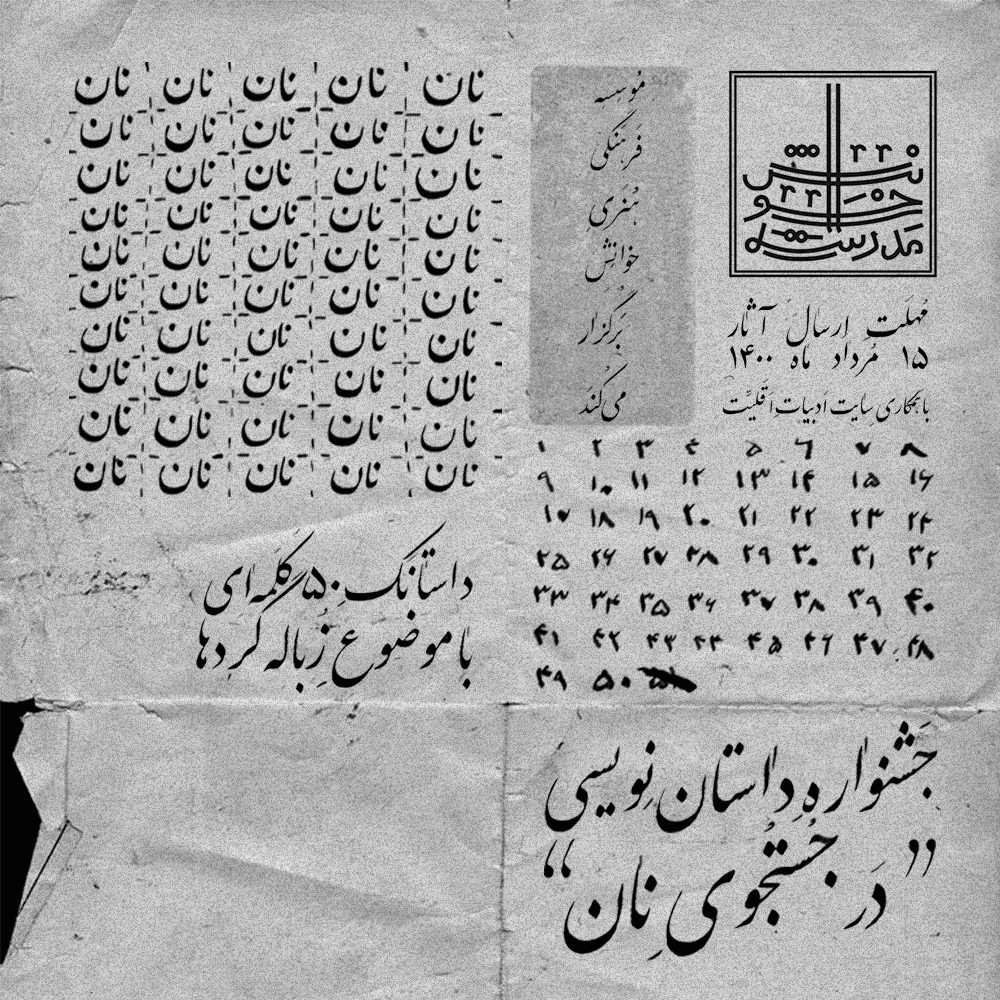 مدرسه خوانش
مهلت ارسال آثار
۱۵ مرداد ماه ۱۴۰۰
با همکاری سایت ادبیات اقلیت
موسسه
فرهنگی
هنری
خوانش
برگزار
می‌کند
نان نان نان نان نان
نان نان نان نان نان
نان نان نان نان نان
نان نان نان نان نان
نان نان نان نان نان
نان نان نان نان نان
نان نان نان نان نان
نان نان نان نان نان
نان نان نان نان نان
نان نان نان نان نان
۱ ۲ ۳ ۴ ۵ ۶ ۷ ۸
۹ ۱۰ ۱۱ ۱۲ ۱۳ ۱۴ ۱۵ ۱۶
۱۷ ۱۸ ۱۹ ۲۰ ۲۱ ۲۲ ۲۳ ۲۴
۲۵ ۲۶ ۲۷ ۲۸ ۲۹ ۳۰ ۳۱ ۳۲
۳۳ ۳۴ ۳۵ ۳۶ ۳۷ ۳۸ ۳۹ ۴۰
۴۱ ۴۲ ۴۳ ۴۴ ۴۵ ۴۶ ۴۷ ۴۸
۴۹ ۵۰
داستانک ۵۰ کلمه‌ای
با موضوع زباله‌گردها
جشنواره داستان نویسی
”در جستجوی نان“